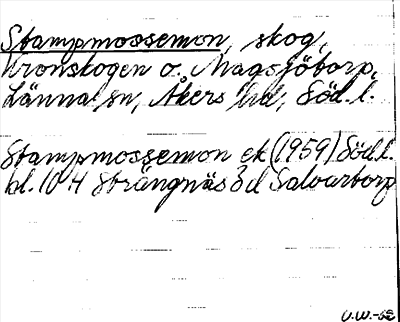 Stampmossemon, skog,
Kronskogen o. Magsjötorp,
Länna sn, Åkers hd, Söd. l.
Stampmossemon ek (1959) Söd. l.
bl. 10 H Strängnäs 3d Salvartorp
U.W.-62